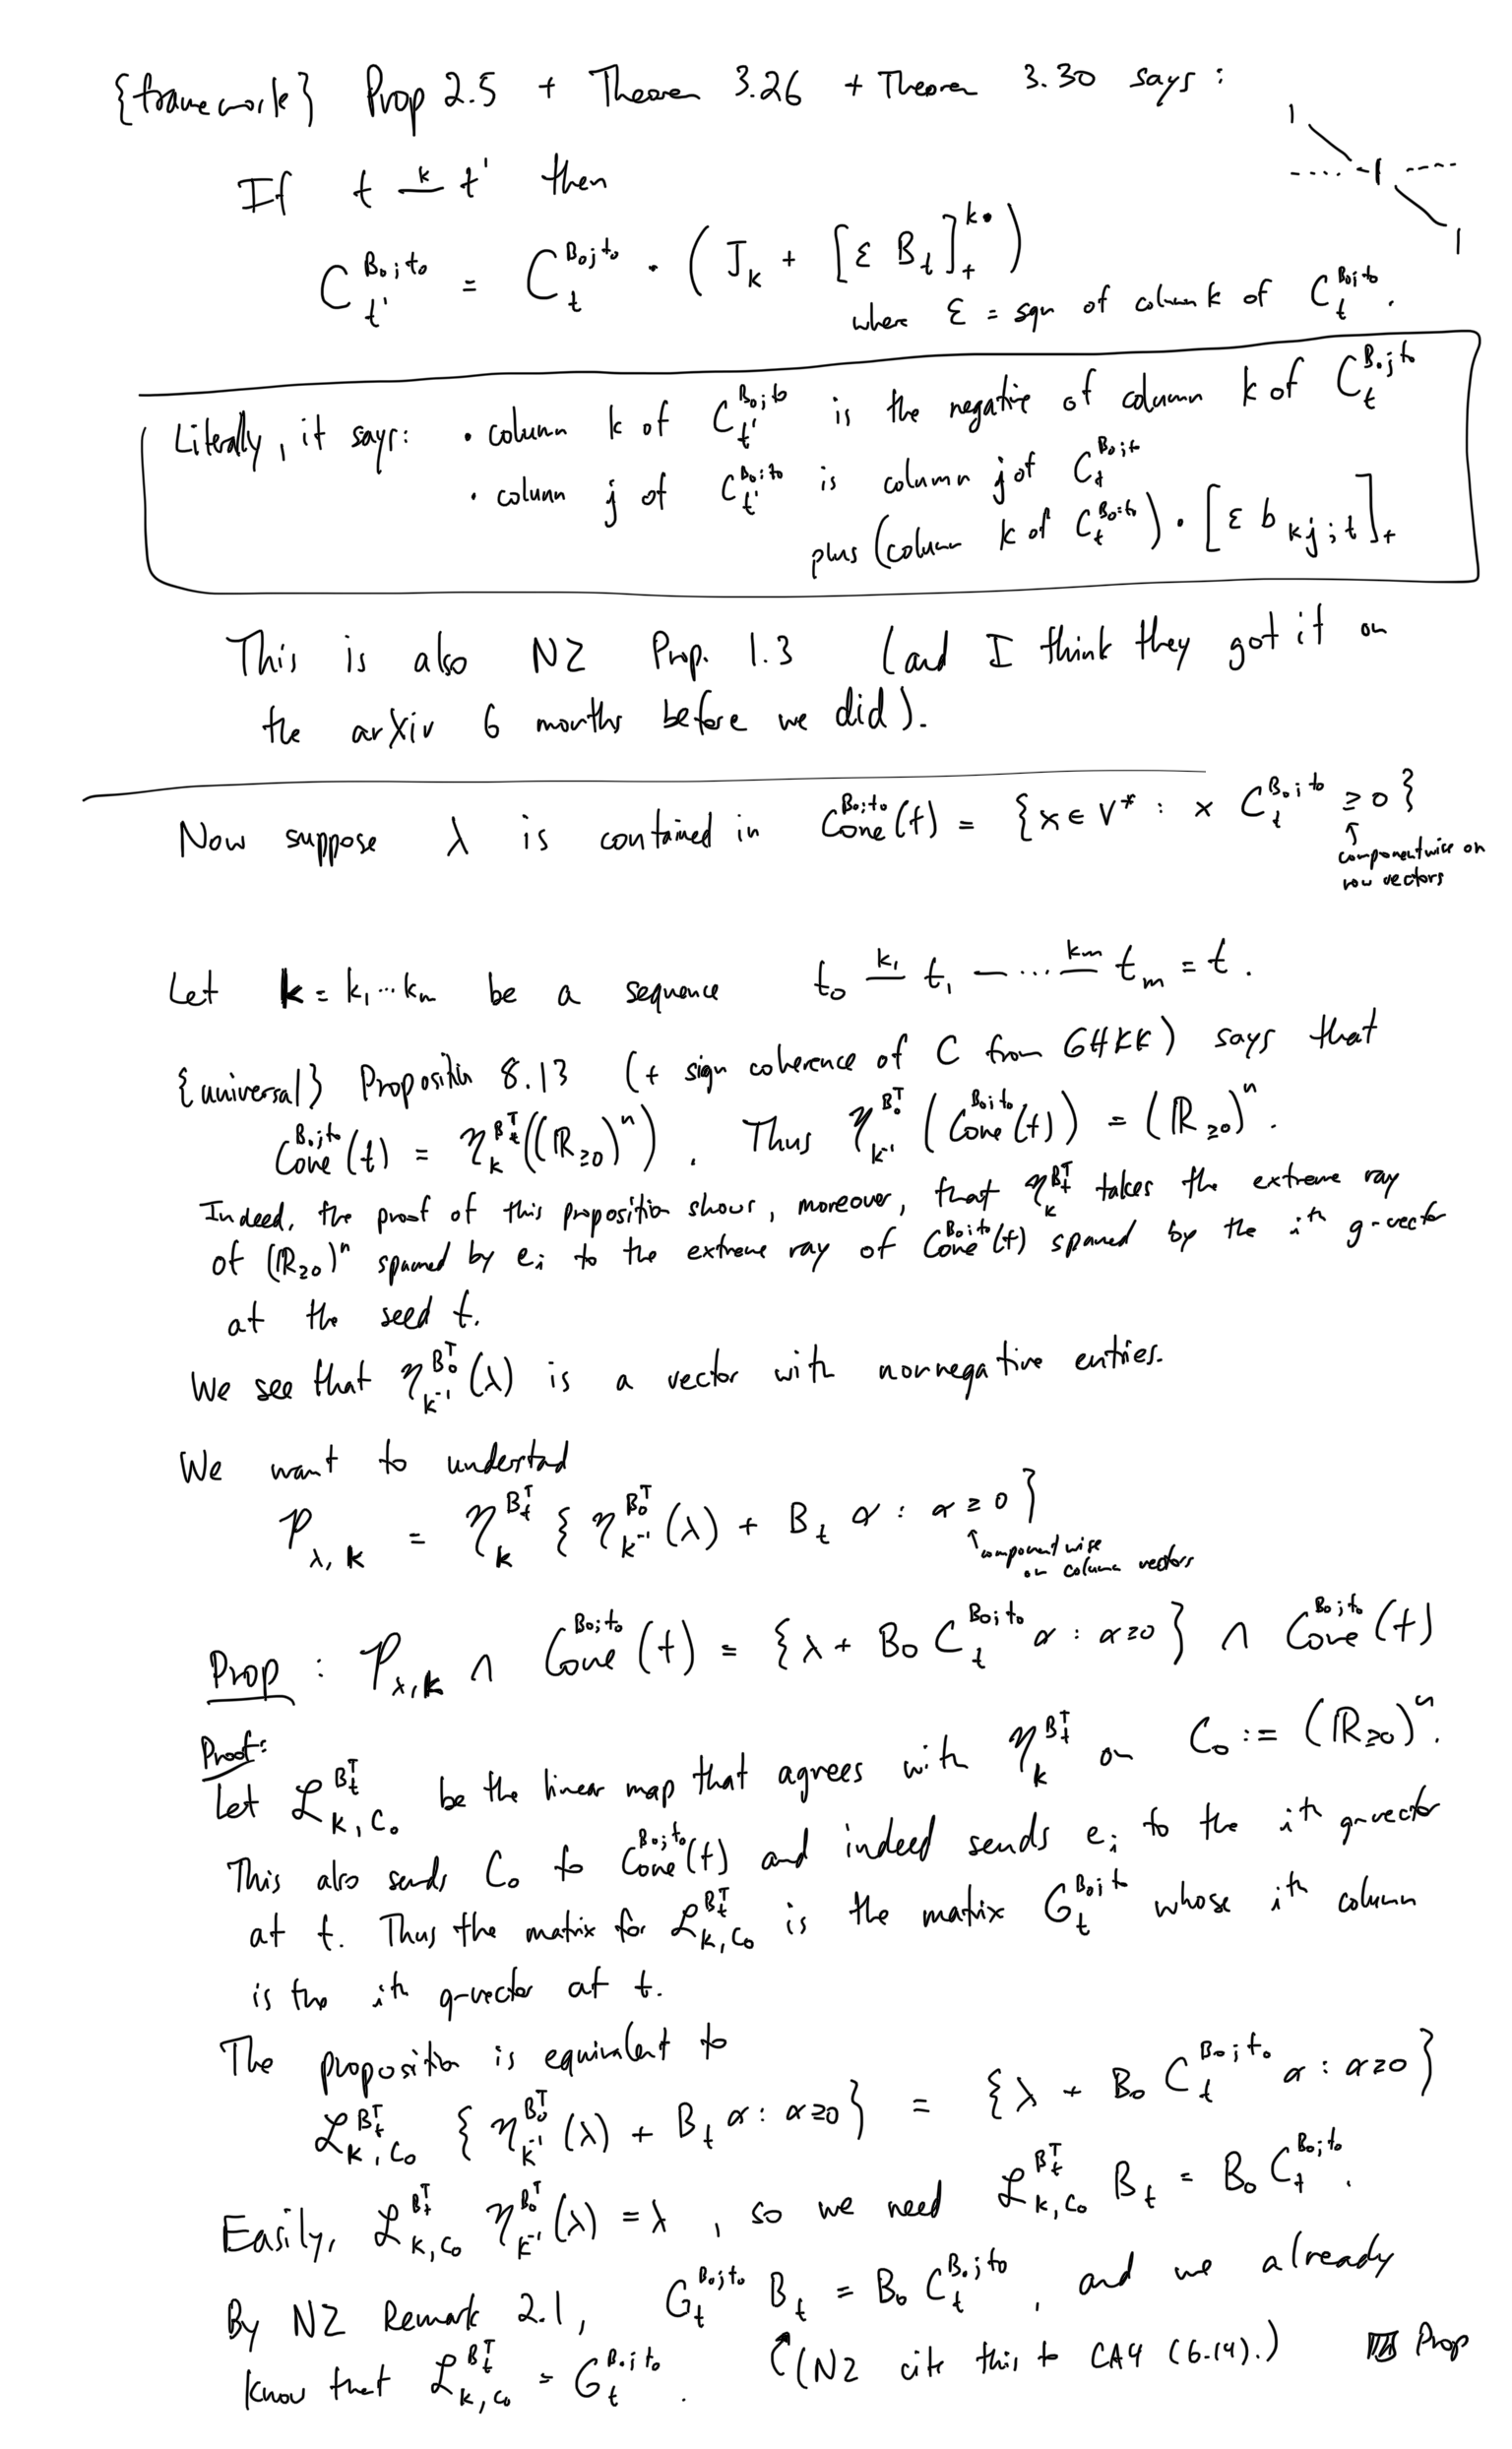 {framework} Prop 2.5 + Theorem 3.26 + Theorem 3.30 says :
If t —k— t' then
C_{t'}^{B_0;t_0} = C_t^{B_0;t_0} · ( J_k + [ε B_t]_+^{k•} )
where ε = sgn of column k of C_t^{B_0;t_0}.
1
..... -1 ----
1
Literally, it says: • column k of C_{t'}^{B_0;t_0} is the negative of column k of C_t^{B_0;t_0}
• column j of C_{t'}^{B_0;t_0} is column j of C_t^{B_0;t_0}
plus (column k of C_t^{B_0;t_0}) · [ε b_{kj;t}]_+
This is also NZ Prop. 1.3 (and I think they got it on
the arXiv 6 months before we did).
Now suppose λ is contained in Cone^{B_0;t_0}(t) = {x ∈ V* : x C_t^{B_0;t_0} ≥ 0}
↑ componentwise on
row vectors
Let k = k_1 ... k_m be a sequence t_0 —k_1— t_1 — ... —k_m— t_m = t.
{universal} Proposition 8.13 (+ sign coherence of C from GHKK) says that
Cone^{B_0;t_0}(t) = η_k^{B_t^T}((ℝ_{≥0})^n). Thus η_{k^{-1}}^{B_0^T}(Cone^{B_0;t_0}(t)) = (ℝ_{≥0})^n.
Indeed, the proof of this proposition shows, moreover, that η_k^{B_t^T} takes the extreme ray
of (ℝ_{≥0})^n spanned by e_i to the extreme ray of Cone^{B_0;t_0}(t) spanned by the i^th g-vector
at the seed t.
We see that η_{k^{-1}}^{B_0^T}(λ) is a vector with nonnegative entries.
We want to understad
P_{λ,k} = η_k^{B_t^T} { η_{k^{-1}}^{B_0^T}(λ) + B_t α : α ≥ 0 }
↑ componentwise
on column vectors
Prop : P_{λ,k} ∩ Cone^{B_0;t_0}(t) = {λ + B_0 C_t^{B_0;t_0} α : α ≥ 0} ∩ Cone^{B_0;t_0}(t)
Proof:
Let ℒ_{k,C_0}^{B_t^T} be the linear map that agrees with η_k^{B_t^T} on C_0 := (ℝ_{≥0})^n.
This also sends C_0 to Cone^{B_0;t_0}(t) and indeed sends e_i to the i^th g-vector
at t. Thus the matrix for ℒ_{k,C_0}^{B_t^T} is the matrix G_t^{B_0;t_0} whose i^th column
is the i^th g-vector at t.
The proposition is equivalent to
ℒ_{k,C_0}^{B_t^T} { η_{k^{-1}}^{B_0^T}(λ) + B_t α : α ≥ 0 } = {λ + B_0 C_t^{B_0;t_0} α : α ≥ 0}
Easily, ℒ_{k,C_0}^{B_t^T} η_{k^{-1}}^{B_0^T}(λ) = λ, so we need ℒ_{k,C_0}^{B_t^T} B_t = B_0 C_t^{B_0;t_0}.
By NZ Remark 2.1, G_t^{B_0;t_0} B_t = B_0 C_t^{B_0;t_0}, and we already
know that ℒ_{k,C_0}^{B_t^T} = G_t^{B_0;t_0}. (NZ cite this to CA4 (6.14).) Prop